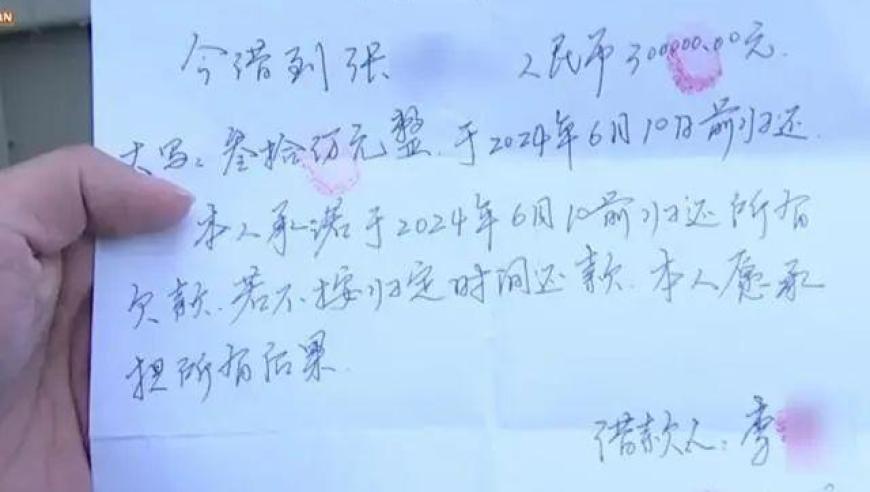 今借到张 人民币300000.00元.
大写:叁拾万元整.于2024年6月10日前归还.
本人承诺于2024年6月10前归还所有
欠款.若不按归定时间还款.本人愿承
担所有后果.
借款人:李